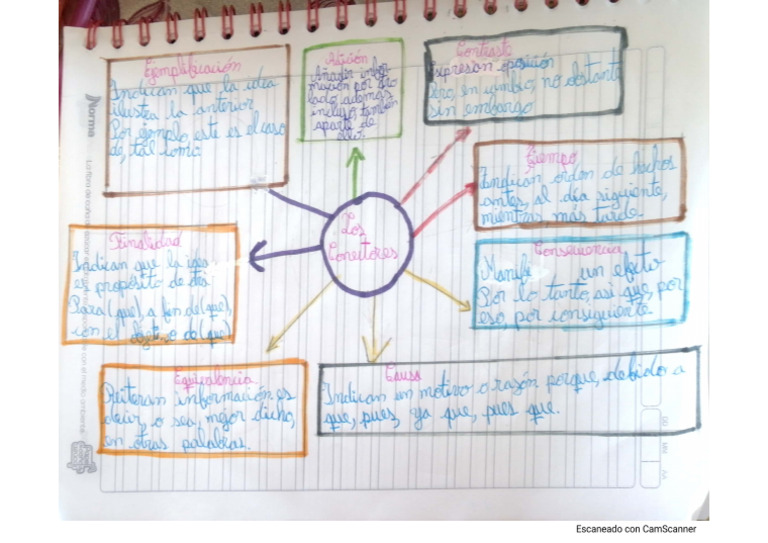 Ejemplificación
Indican que la idea
ilustra la anterior
Por ejemplo, este es el caso
de, tal como.
Adición
Añaden infor-
mación por otro
lado, además
incluso, también
aparte de
ello.
Contraste
Expresan oposición
Pero, en cambio, no obstante
sin embargo
Tiempo
Indican orden de hechos
antes, al día siguiente,
mientras más tarde.
Los
Conectores
Finalidad
Indican que la idea
es propósito de
Para (que), a fin de (que),
con el objetivo de (que)
Consecuencia
Manifi un efecto
Por lo tanto, así que, por
eso, por consiguiente.
Equivalencia
Reiteran información es
decir, o sea, mejor dicho,
en otras palabras.
Causa
Indican un motivo o razón porque, debido a
que, pues, ya que, pues que.
Norma
DD MM AA
Escaneado con CamScanner